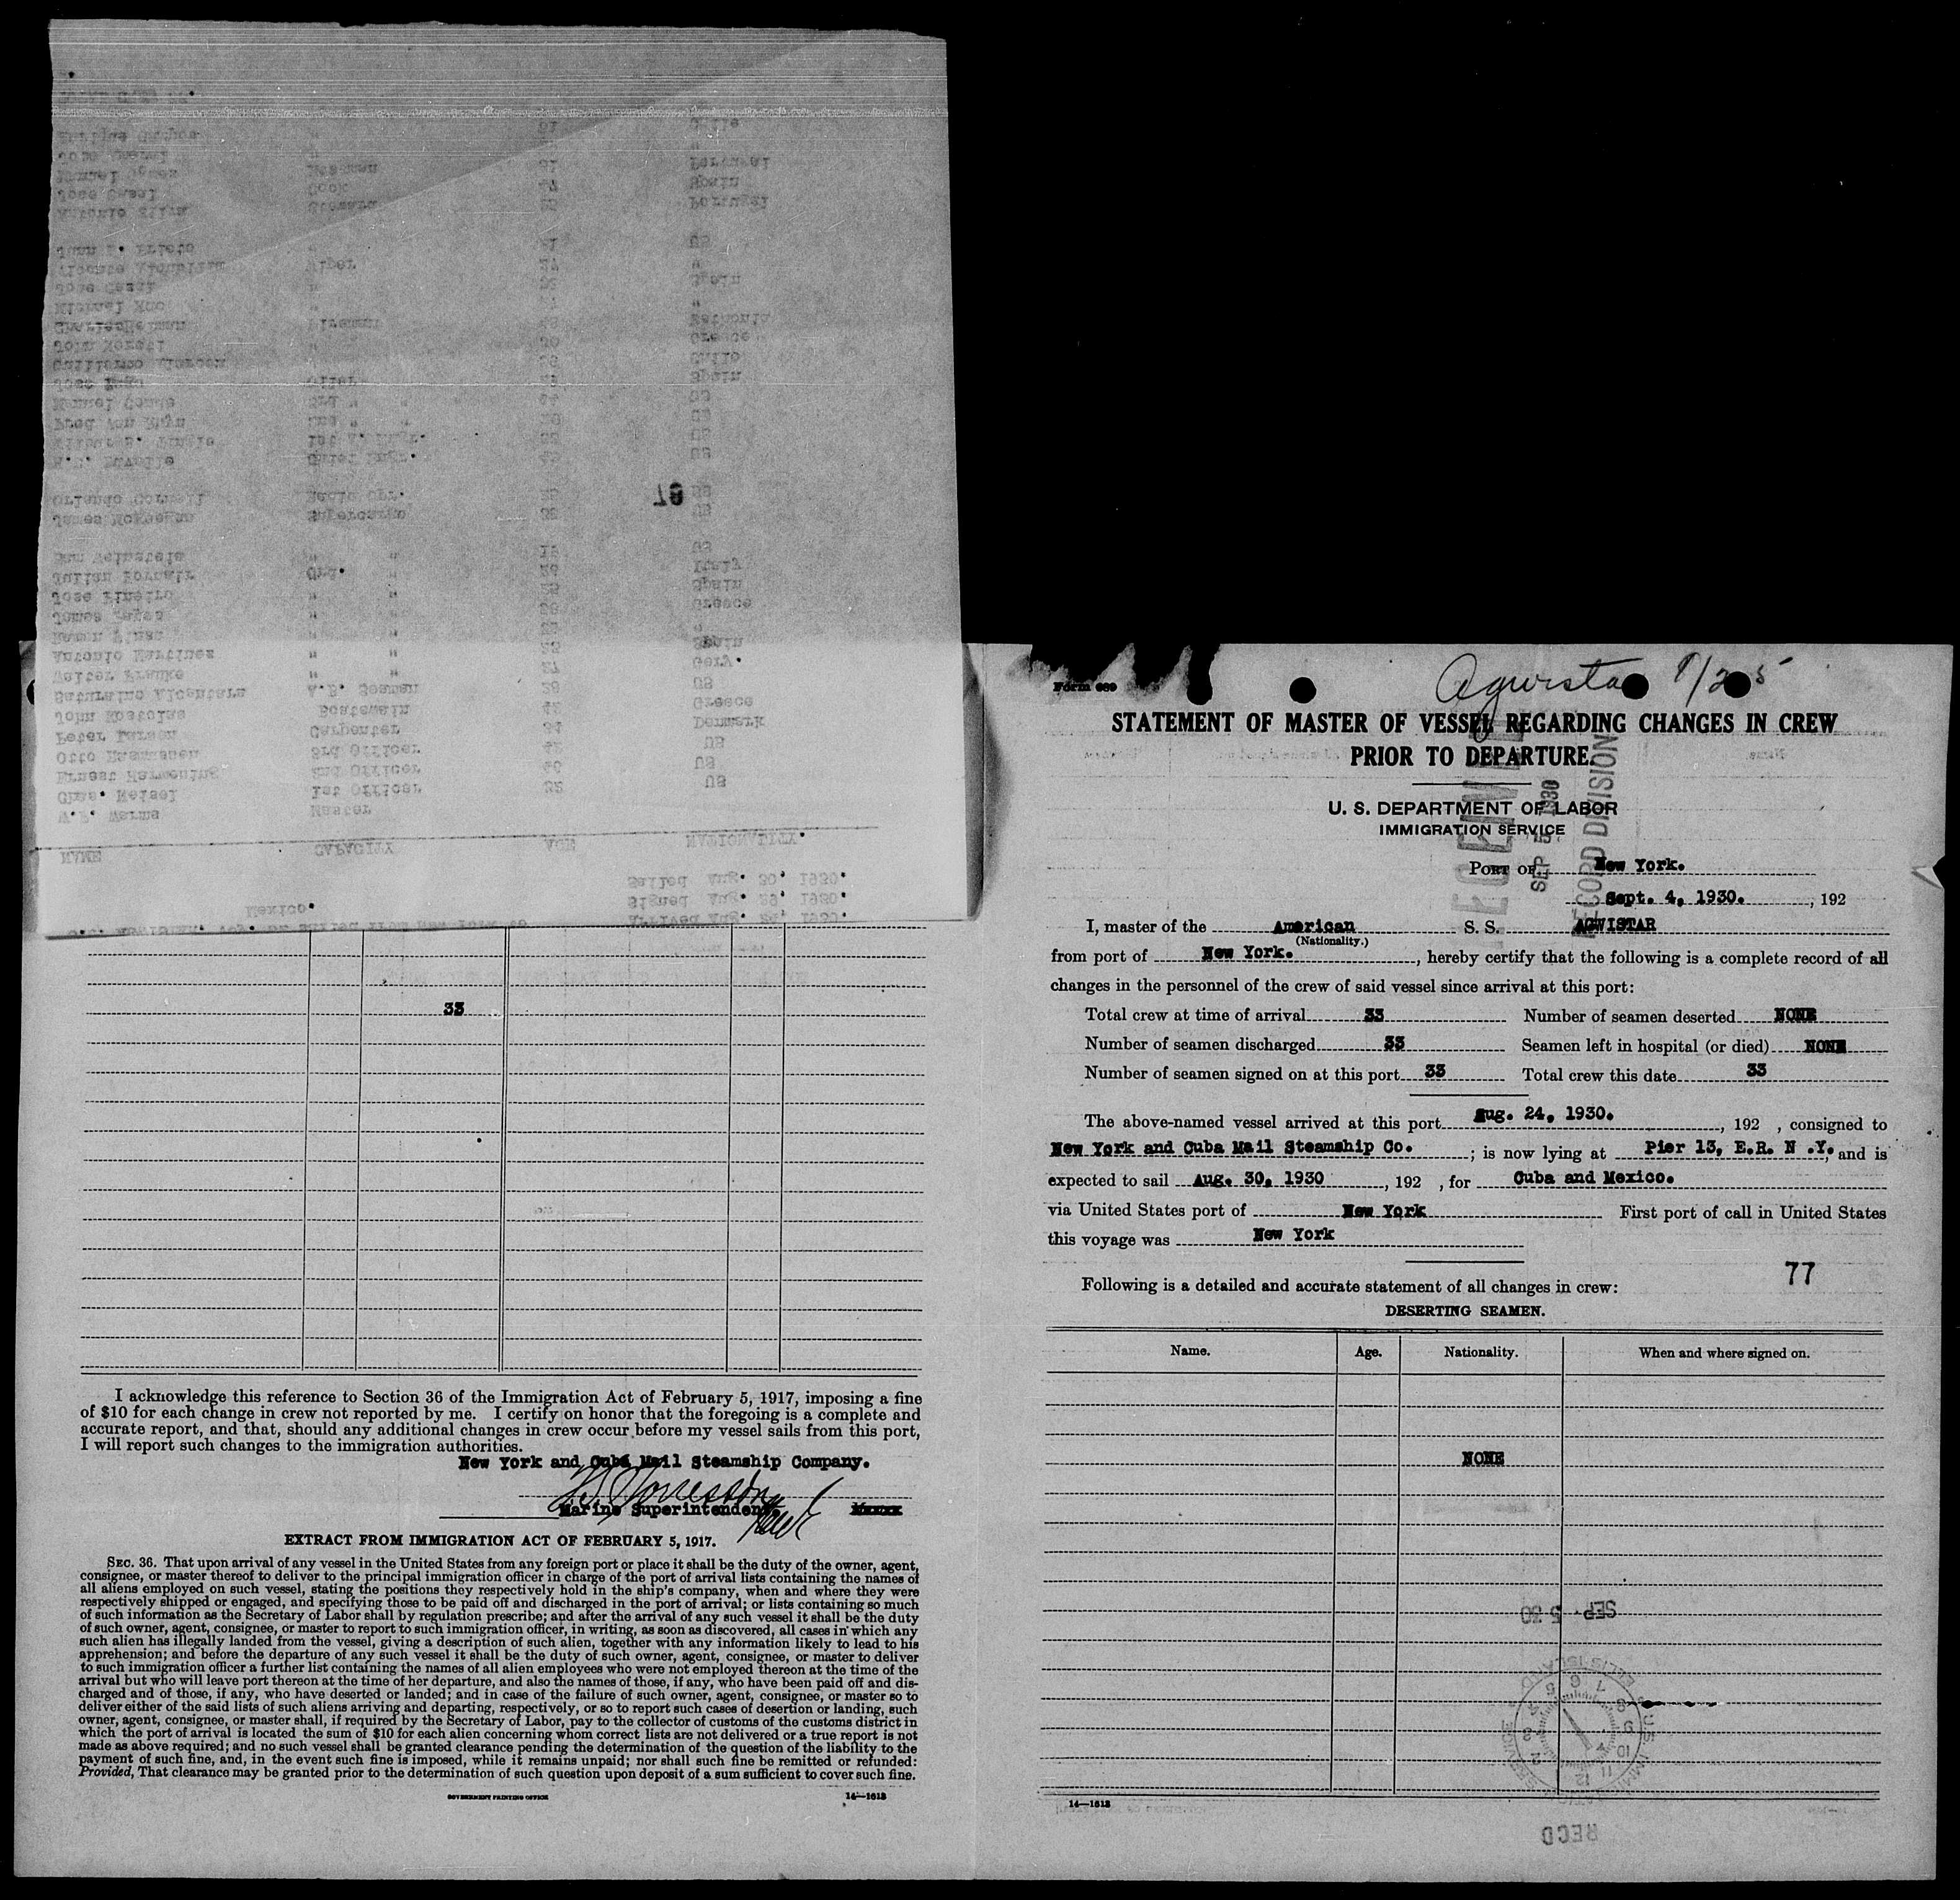 Form 689
Agwista 9/2 5
STATEMENT OF MASTER OF VESSEL REGARDING CHANGES IN CREW
PRIOR TO DEPARTURE.
U. S. DEPARTMENT OF LABOR
IMMIGRATION SERVICE
RECEIVED
SEP 5 1930
RECORD DIVISION
PORT OF New York.
Sept. 4, 1930. , 192
I, master of the American S. S. AGWISTAR
(Nationality.)
from port of New York. , hereby certify that the following is a complete record of all
changes in the personnel of the crew of said vessel since arrival at this port:
Total crew at time of arrival 33 Number of seamen deserted NONE
Number of seamen discharged 33 Seamen left in hospital (or died) NONE
Number of seamen signed on at this port 33 Total crew this date 33
The above-named vessel arrived at this port Aug. 24, 1930. , 192 , consigned to
New York and Cuba Mail Steamship Co. ; is now lying at Pier 13, E.R. N .Y. , and is
expected to sail Aug. 30, 1930 , 192 , for Cuba and Mexico.
via United States port of New York First port of call in United States
this voyage was New York
77
Following is a detailed and accurate statement of all changes in crew:
DESERTING SEAMEN.
Name. Age. Nationality. When and where signed on.
NONE
SEP. 5 30
ELLIS ISLAND
RECD
14—1613
Mexico.
Arrived Aug. 24, 1930.
Signed Aug. 29, 1930.
Sailed Aug. 30, 1930.
NAME CAPACITY AGE NATIONALITY.
W.F. Warms Master
Chas. Meisel 1st Officer 32 US
Ernest Harmening 2nd Officer 40 US
Otto Rasmussen 3rd Officer 42 US
Peter Larsen Carpenter 34 Denmark
John Kostolas Boatswain 42 Greece
Saturnino Alcantara A.B. Seaman 28 US
Walter Franke " " 27 Gery.
Antonio Martinez " " 35 Spain
Ramon Vinas " " "
James Pages " " 38 Greece
Jose Pineiro " " 25 Spain
Julian Ord. " 24 Italy
Sam Weinstein " " 19 US
James Supercargo 38 US
Orlando Radio Opr. US
76
Chief Engr. US
1st A. Engr. US
Fred Von 2nd " " US
Manuel Conde 3rd " " US
Jose Oiler Spain
Guillermo Chile
John Greece
Charles Fireman Esthonia
Michael "
Jose Spain
Vicente Wiper "
Juan Prieto " US
Antonio Silva Steward Portugal
Jose Casal Cook 47 Spain
Manuel Messman 31 Portugal
Jose " "
Enrique " Chile
33
I acknowledge this reference to Section 36 of the Immigration Act of February 5, 1917, imposing a fine
of $10 for each change in crew not reported by me. I certify on honor that the foregoing is a complete and
accurate report, and that, should any additional changes in crew occur before my vessel sails from this port,
I will report such changes to the immigration authorities.
New York and Cuba Mail Steamship Company.
Marine Superintendent.
EXTRACT FROM IMMIGRATION ACT OF FEBRUARY 5, 1917.
SEC. 36. That upon arrival of any vessel in the United States from any foreign port or place it shall be the duty of the owner, agent,
consignee, or master thereof to deliver to the principal immigration officer in charge of the port of arrival lists containing the names of
all aliens employed on such vessel, stating the positions they respectively hold in the ship's company, when and where they were
respectively shipped or engaged, and specifying those to be paid off and discharged in the port of arrival; or lists containing so much
of such information as the Secretary of Labor shall by regulation prescribe; and after the arrival of any such vessel it shall be the duty
of such owner, agent, consignee, or master to report to such immigration officer, in writing, as soon as discovered, all cases in which any
such alien has illegally landed from the vessel, giving a description of such alien, together with any information likely to lead to his
apprehension; and before the departure of any such vessel it shall be the duty of such owner, agent, consignee, or master to deliver
to such immigration officer a further list containing the names of all alien employees who were not employed thereon at the time of the
arrival but who will leave port thereon at the time of her departure, and also the names of those, if any, who have been paid off and dis-
charged and of those, if any, who have deserted or landed; and in case of the failure of such owner, agent, consignee, or master so to
deliver either of the said lists of such aliens arriving and departing, respectively, or so to report such cases of desertion or landing, such
owner, agent, consignee, or master shall, if required by the Secretary of Labor, pay to the collector of customs of the customs district in
which the port of arrival is located the sum of $10 for each alien concerning whom correct lists are not delivered or a true report is not
made as above required; and no such vessel shall be granted clearance pending the determination of the question of the liability to the
payment of such fine, and, in the event such fine is imposed, while it remains unpaid; nor shall such fine be remitted or refunded:
Provided, That clearance may be granted prior to the determination of such question upon deposit of a sum sufficient to cover such fine.
GOVERNMENT PRINTING OFFICE 14—1613